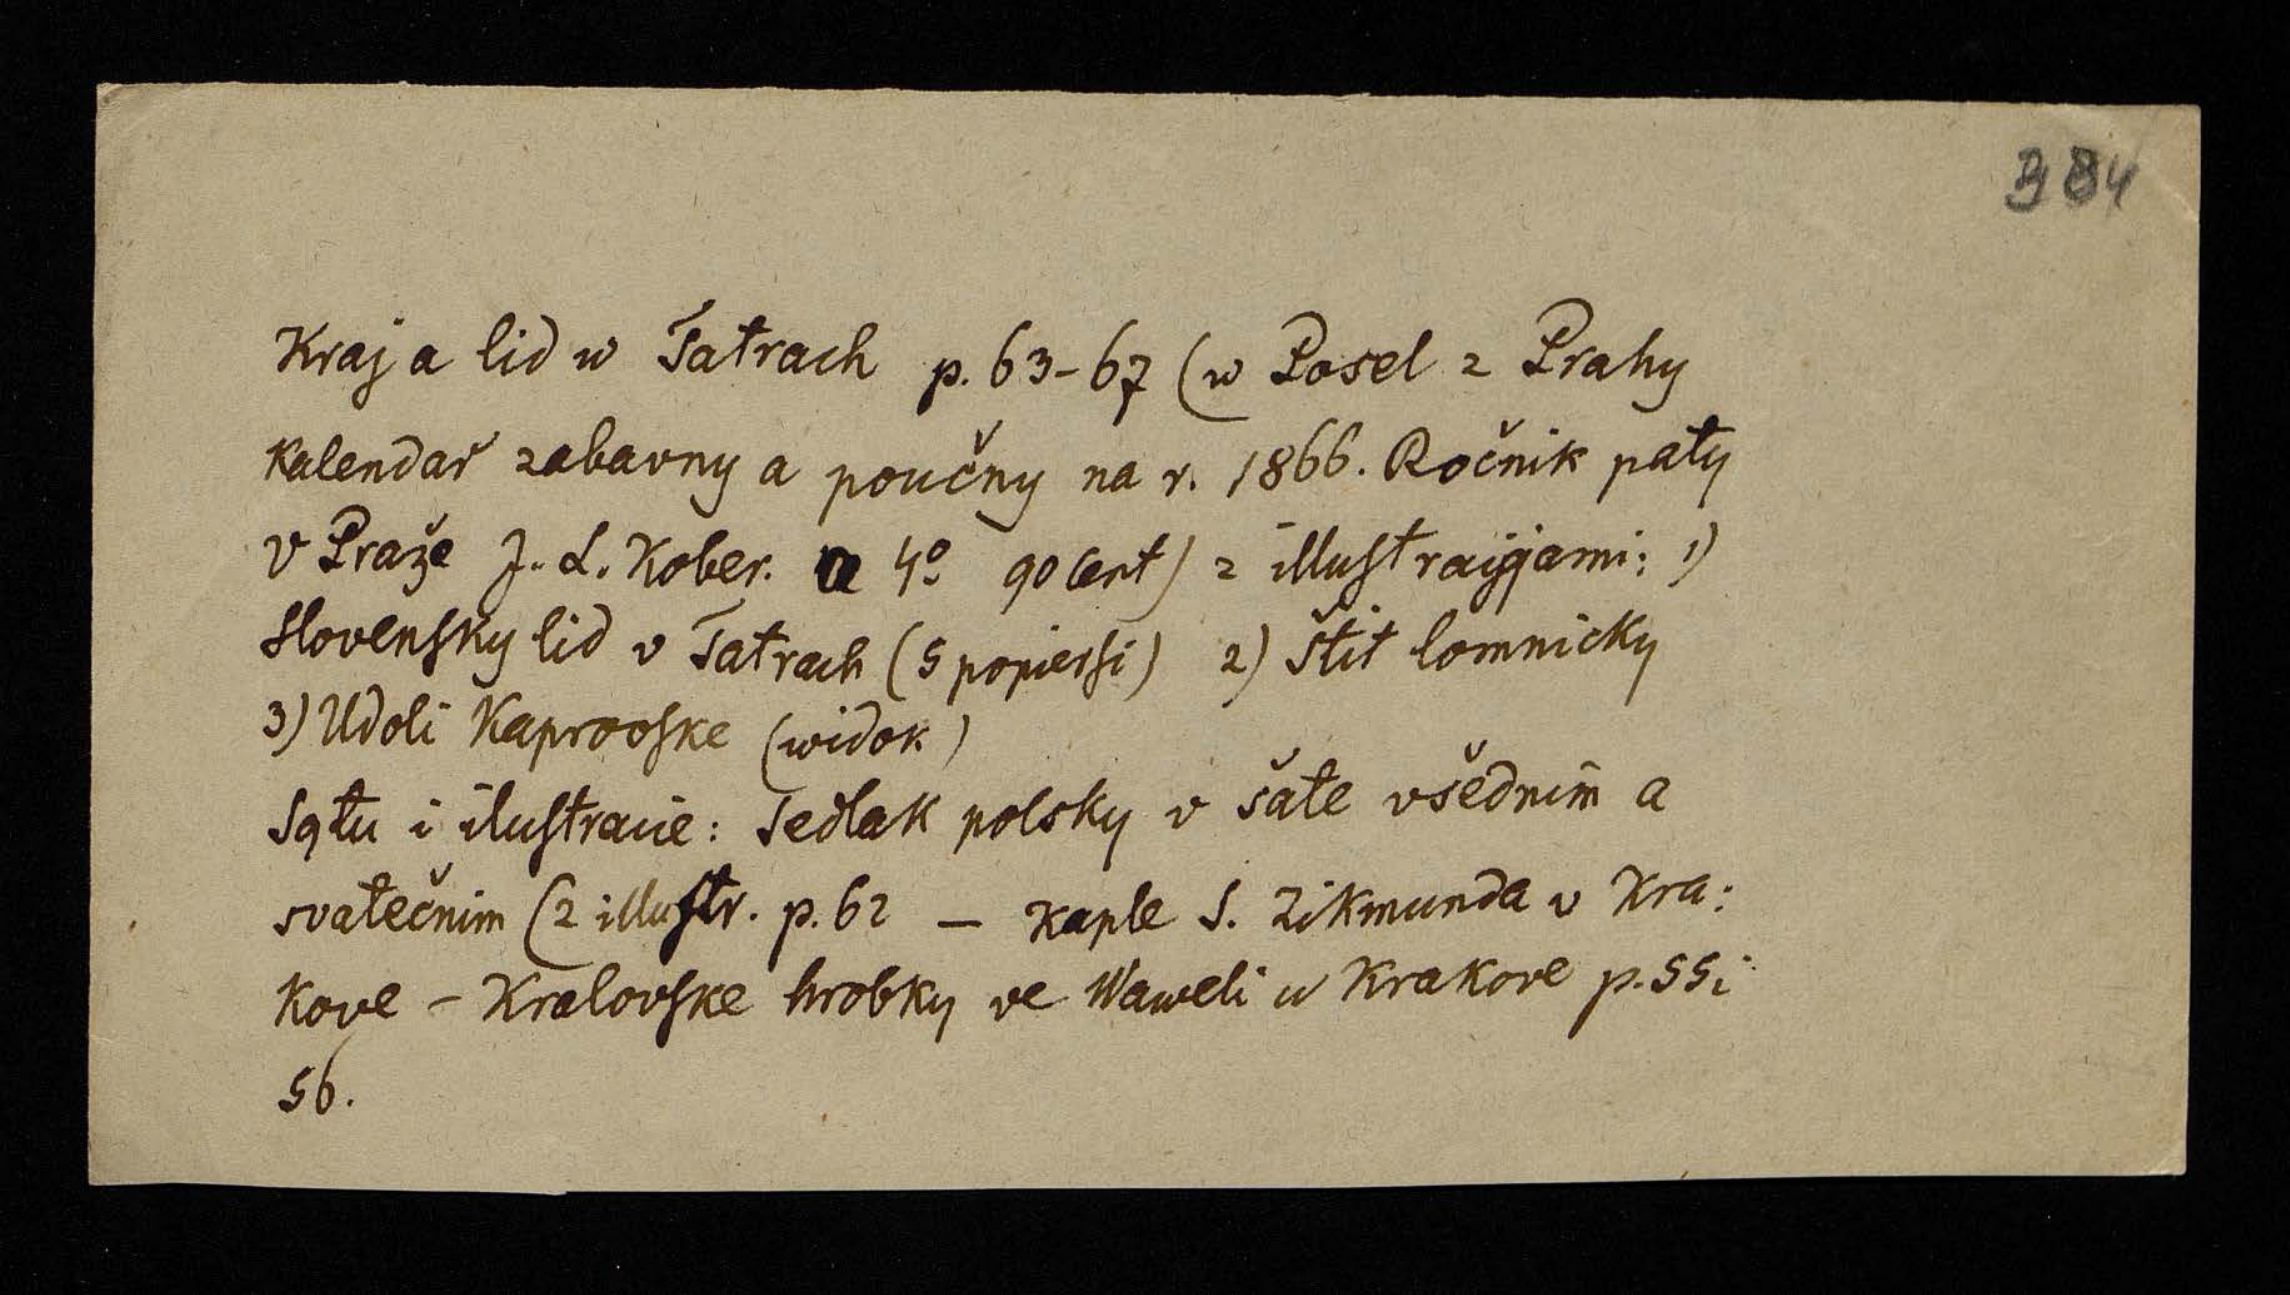 384
Kraj a lid w Tatrach p. 63-67 (w Posel z Prahy
Kalendař zabavny a poučny na r. 1866. Ročnik paty
v Praže J. L. Kober. w 4º 90 cent) z illustracyjami: 1)
Slovensky lid v Tatrach (5 popiersi) 2) Štit lomnicky
3) Udoli Kaprovske (widok)
Są tu i ilustracie: Sedlak polsky v šate všednim a
svatečnim (2 illustr. p. 62 — Kaple S. Zikmunda v Kra:
kove - Kralovske hrobky ve Waweli w Krakove p. 55 i
56.